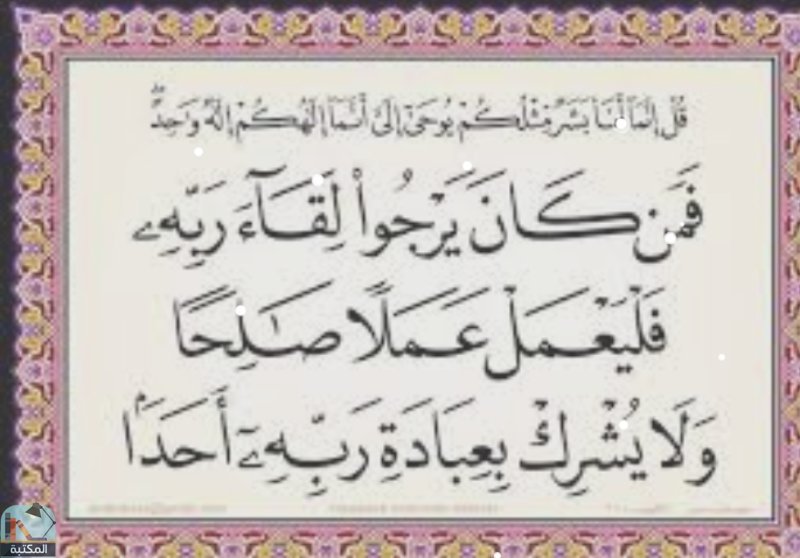 قُلْ إِنَّمَآ أَنَا۠ بَشَرٌ مِّثْلُكُمْ يُوحَىٰٓ إِلَىَّ أَنَّمَآ إِلَٰهُكُمْ إِلَٰهٌ وَٰحِدٌ ۖ
فَمَن كَانَ يَرْجُوا۟ لِقَآءَ رَبِّهِۦ
فَلْيَعْمَلْ عَمَلًا صَٰلِحًا
وَلَا يُشْرِكْ بِعِبَادَةِ رَبِّهِۦٓ أَحَدًۢا
المكتبة